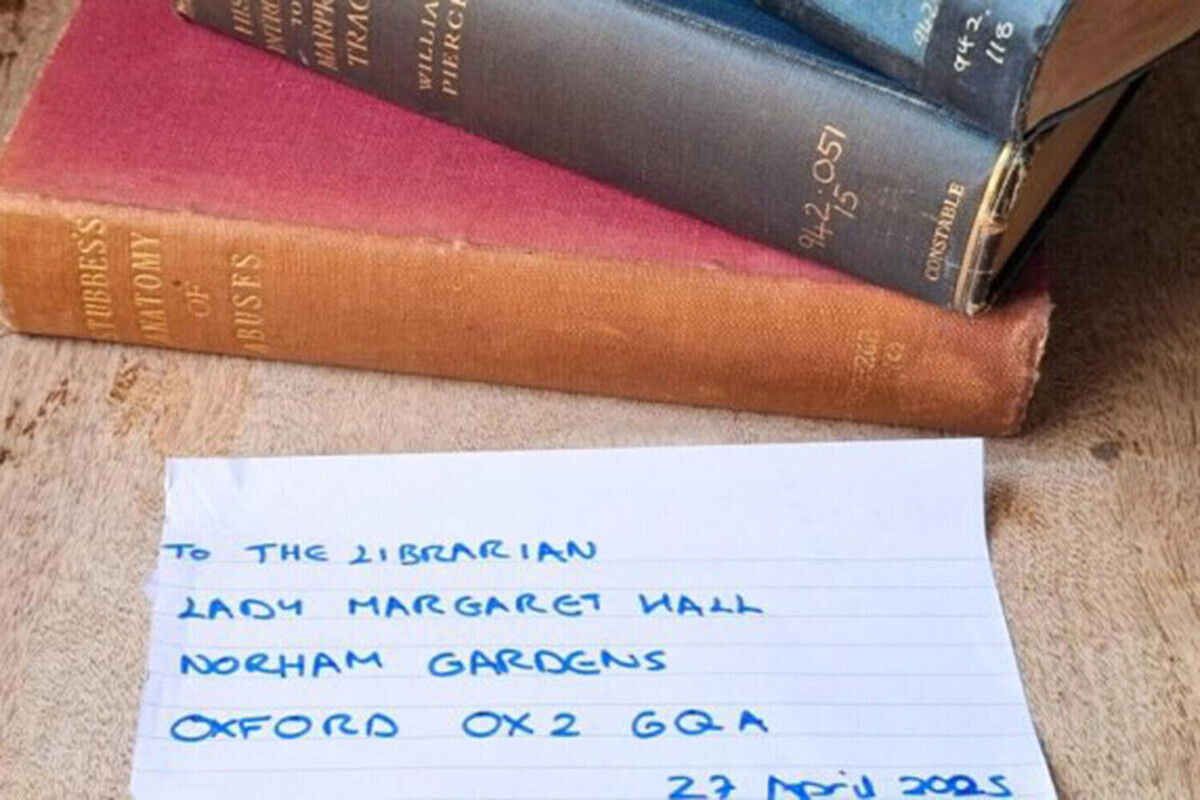 942.
118
TO
WILLIA
PIERCE
942.051
15
CONSTABLE
STUBBES'S
ANATOMY
OF
ABUSES
TO THE LIBRARIAN
LADY MARGARET HALL
NORHAM GARDENS
OXFORD OX2 GQA
27 April 2025